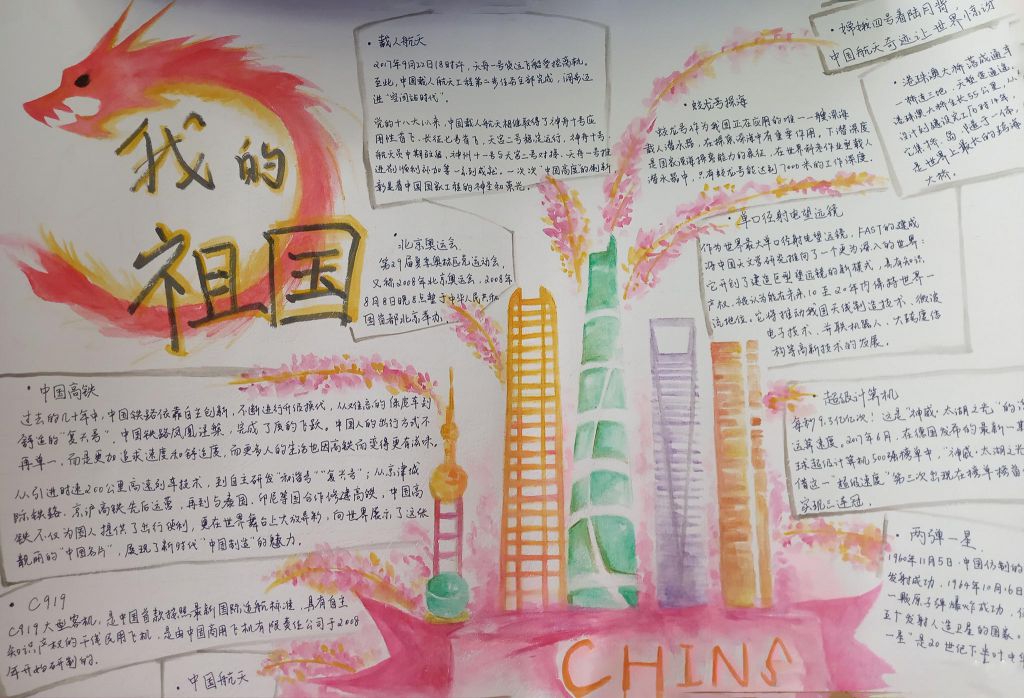 我的
祖国
·载人航天
2017年9月22日18时许，天舟一号货运飞船受控离轨。
至此，中国载人航天工程第二步任务全部完成，阔步迈
进“空间站时代”。
党的十八大以来，中国载人航天相继取得了神舟十号应
用性首飞，长征七号首飞，天宫二号稳定运行，神舟十号
航天员中期驻留，神州十一号与天宫二号对接，天舟一号推
进剂
等一系列成就。一次次“中国高度的刷新
国家工程的
·北京奥运会
第29届夏季奥林匹克运动会，
又称2008年北京奥运会，2008年
8月8日晚8点整于中华人民共和
国首都北京举办。
·中国高铁
过去的几十年中，中国铁路依靠自主创新，不断进行升级换代，从
舒适的“复兴号”，中国铁路凤凰涅槃，完成了质的飞跃。中国人的出行方式不
再单一，而是更加追求速度和舒适度，而更多人的生活也因高铁而变得更有滋味。
从引进时速200公里高速列车技术，到自主研发“和谐号”“复兴号”；从京津城
际铁路、京沪高铁先后运营，再到与泰国、印尼等国合作修建高铁，中国高
铁不仅为国人提供了出行便利，更在世界舞台上大放异彩，向世界展示了这张
靓丽的“中国名片”，展现了新时代“中国制造”的魅力。
·C919
C919大型客机，是中国首款按照最新国际适航标准，具有自主
知识产权的干线民用飞机，是由中国商用飞机有限责任公司于2008
年开始研制的。
·中国航天
·蛟龙号探海
蛟龙号作为我国正在应用的唯一一艘深海
载人潜水器，在探索深海中有重要作用。下潜深度
是国家深海探索能力的象征，在世界同类作业型载人
潜水器中，只有蛟龙号能达到了7000米的工作深度。
·嫦娥四号着陆月背
中国航天奇迹让世界惊讶
·港珠澳大桥落成通车
一桥连三地，天堑变通途，
港珠澳大桥全长55公里，从
设计到建设完工历时14年，
它集桥、岛、隧于一体，
是世界上最长的跨海
大桥。
·单口径射电望远镜
作为世界最大单口径射电望远镜，FAST的建成
将中国天文学研发推向了一个更为深入的世界；
它开创了建造巨型望远镜的新模式，具有知识
产权，被认为能在未来10至20年内保持世界一
流地位。它将推动我国天线制造技术、微波
电子技术、并联机器人、大跨度结
构等高新技术的发展。
·超级计算机
每秒9.3亿亿次！这是“神威·太湖之光”的
运算速度。2017年6月，在德国发布的最新一期
球超级计算机500强榜单中，“神威·太湖之光
借这一“超级速度”第三次出现在榜单榜首
实现三连冠。
·两弹一星
1960年11月5日，中国仿制的
发射成功，1964年10月16日
一颗原子弹爆炸成功，
五个发射人造卫星的国家。
一星”是20世纪下半叶中华
CHINA